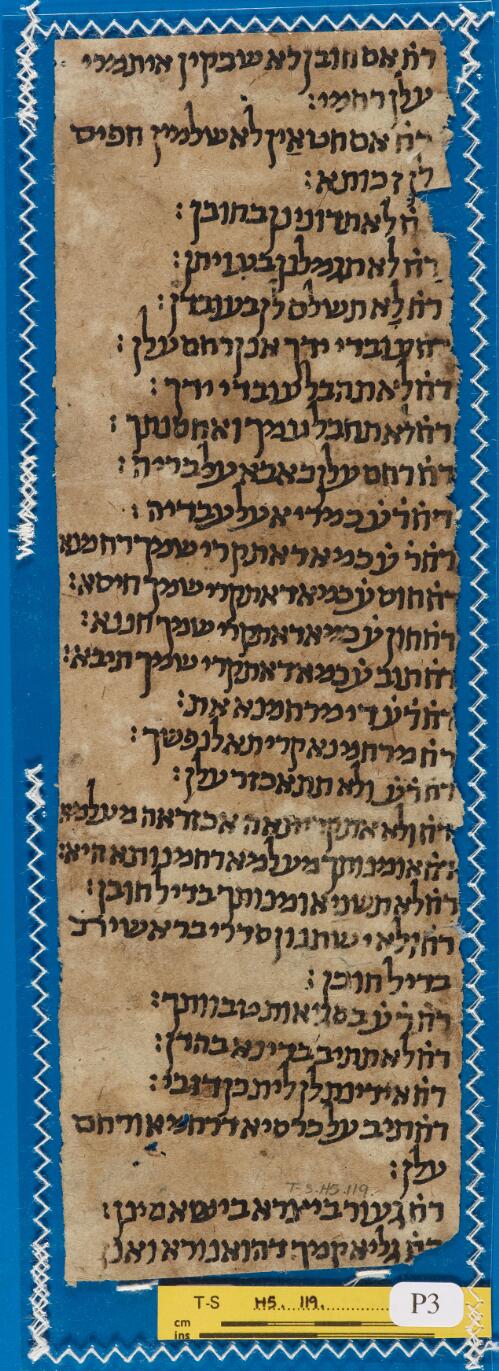 רח אם חובן לא שבקין אותמלי
עלן רחמיי:
רח אם חטאין לא שלמיין חפיס
לן זכותא:
רח לא תדונינן בחובן:
רח לא תגמלנן בעויתן:
רח לא תשלם לן בעובדן:
רח עובדי ידך אנן רחם עלן:
רח לא תהבל עובדי ידך:
רח לא תחבל עמך ואחסנתך:
רח רחם עלן כאבא על בריה:
רח ר ע כמריא על עבדיה:
רח ר ע כמיא דאתקרי שמך רחמנא
רח חוס ע כמיא דאתקרי שמך חיסא:
רח חון ע כמיא דאתקרי שמך חננא:
רח תוב ע כמא דאתקרי שמך תיבא:
רח ר ע די מרחמנא את:
רח מרחמינא קריתא לנפשך:
רח ר ע ולא תתאכזר עלן:
רח ולא אתקריתאה אכזראה מעלמא
רח אומנותך מעלמא רחמנותא היא:
רח לא תשני אומנותך בדיל חובן:
רח ולא ישתנון סדרי בראשית
בדיל חובן:
רח ר ע בסגיאות טבוותך:
רח לא תתיב בדינא בהדן:
רח אי דינת לן לית בן דזכי:
רח תיב על כרסיא דרחמי אורחם
עלן:
T-S.H5.119
רח געור ביצרא בישא מינן:
רח גליא קמך דהוא נורא ואנן
T-S H5. 119.
cm
ins
P3